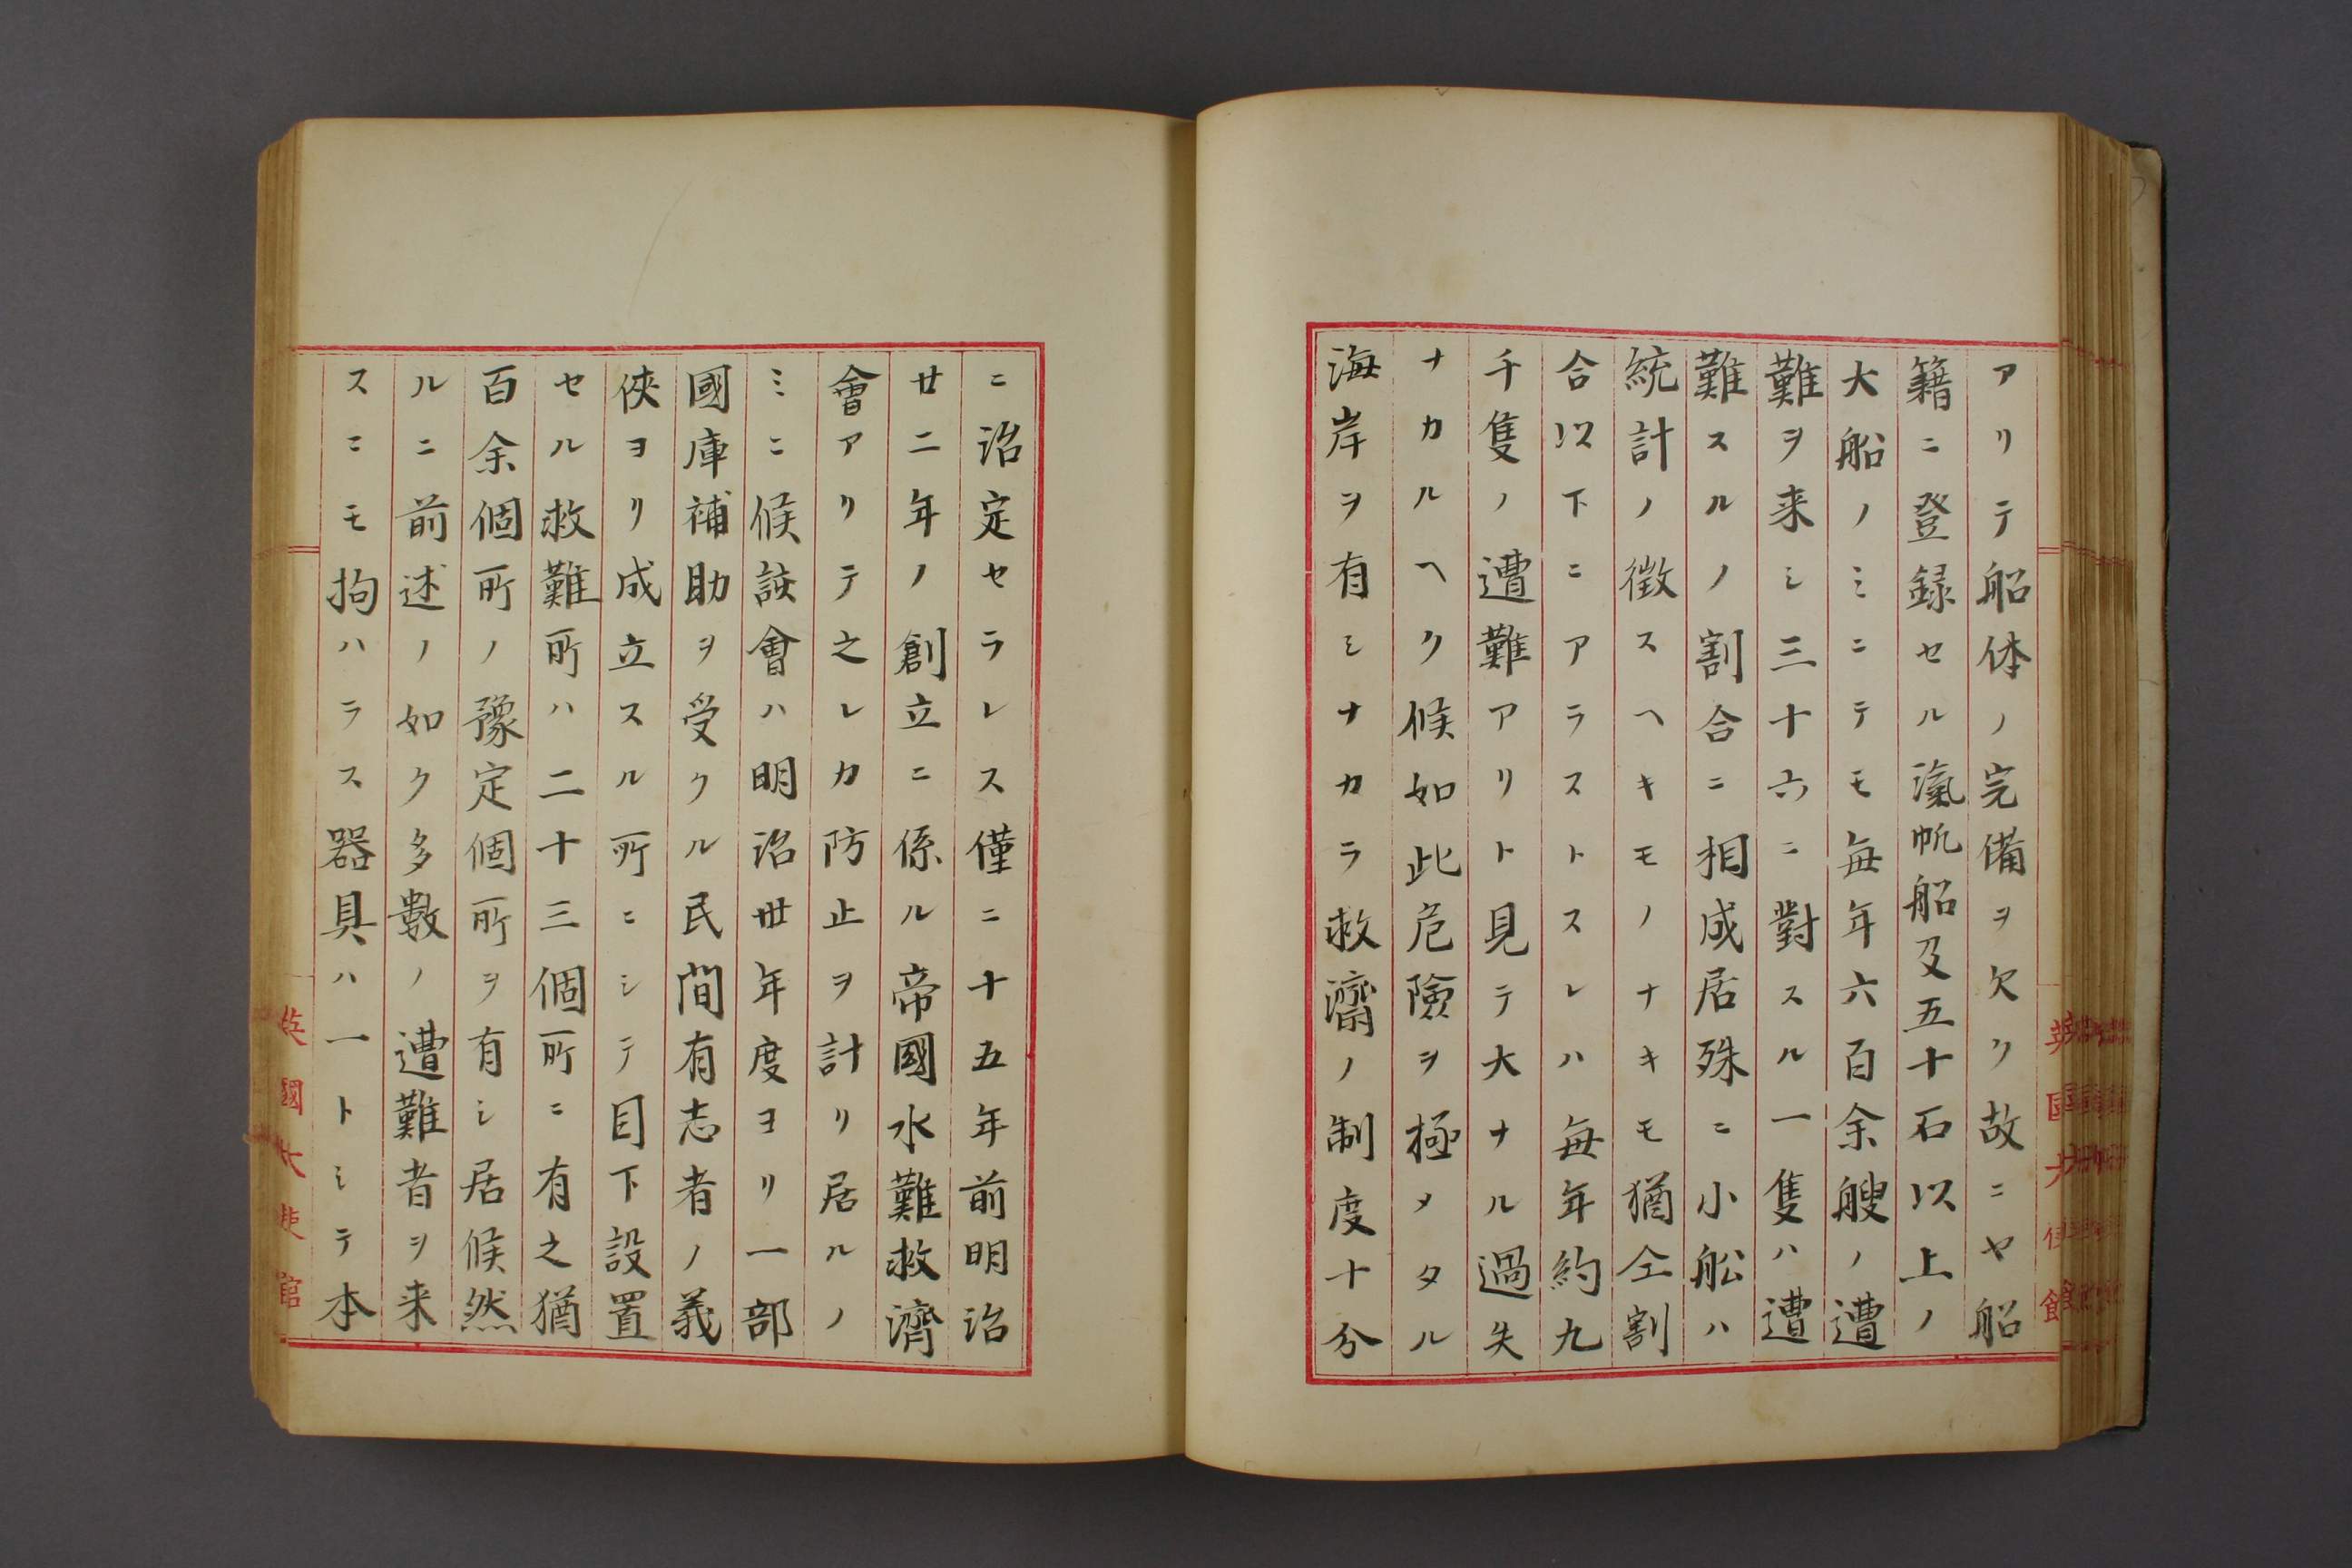 アリテ船体ノ完備ヲ欠ク故ニヤ船
籍ニ登録セル滊帆船及五十石以上ノ
大船ノミニテモ毎年六百余艘ノ遭
難ヲ来シ三十六ニ對スル一隻ハ遭
難スルノ割合ニ相成居殊ニ小舩ハ
統計ノ徴スヘキモノナキモ猶仝割
合以下ニアラストスレハ毎年約九
千隻ノ遭難アリト見テ大ナル過失
ナカルヘク候如此危險ヲ極メタル
海岸ヲ有シナカラ救濟ノ制度十分
ニ治定セラレス僅ニ十五年前明治
廿二年ノ創立ニ係ル帝國水難救濟
會アリテ之レカ防止ヲ計リ居ルノ
ミニ候該會ハ明治卅年度ヨリ一部
國庫補助ヲ受クル民間有志者ノ義
俠ヨリ成立スル所ニシテ目下設置
セル救難所ハ二十三個所ニ有之猶
百余個所ノ豫定個所ヲ有シ居候然
ルニ前述ノ如ク多數ノ遭難者ヲ来
スニモ拘ハラス器具ハ一トシテ本
英國大使館